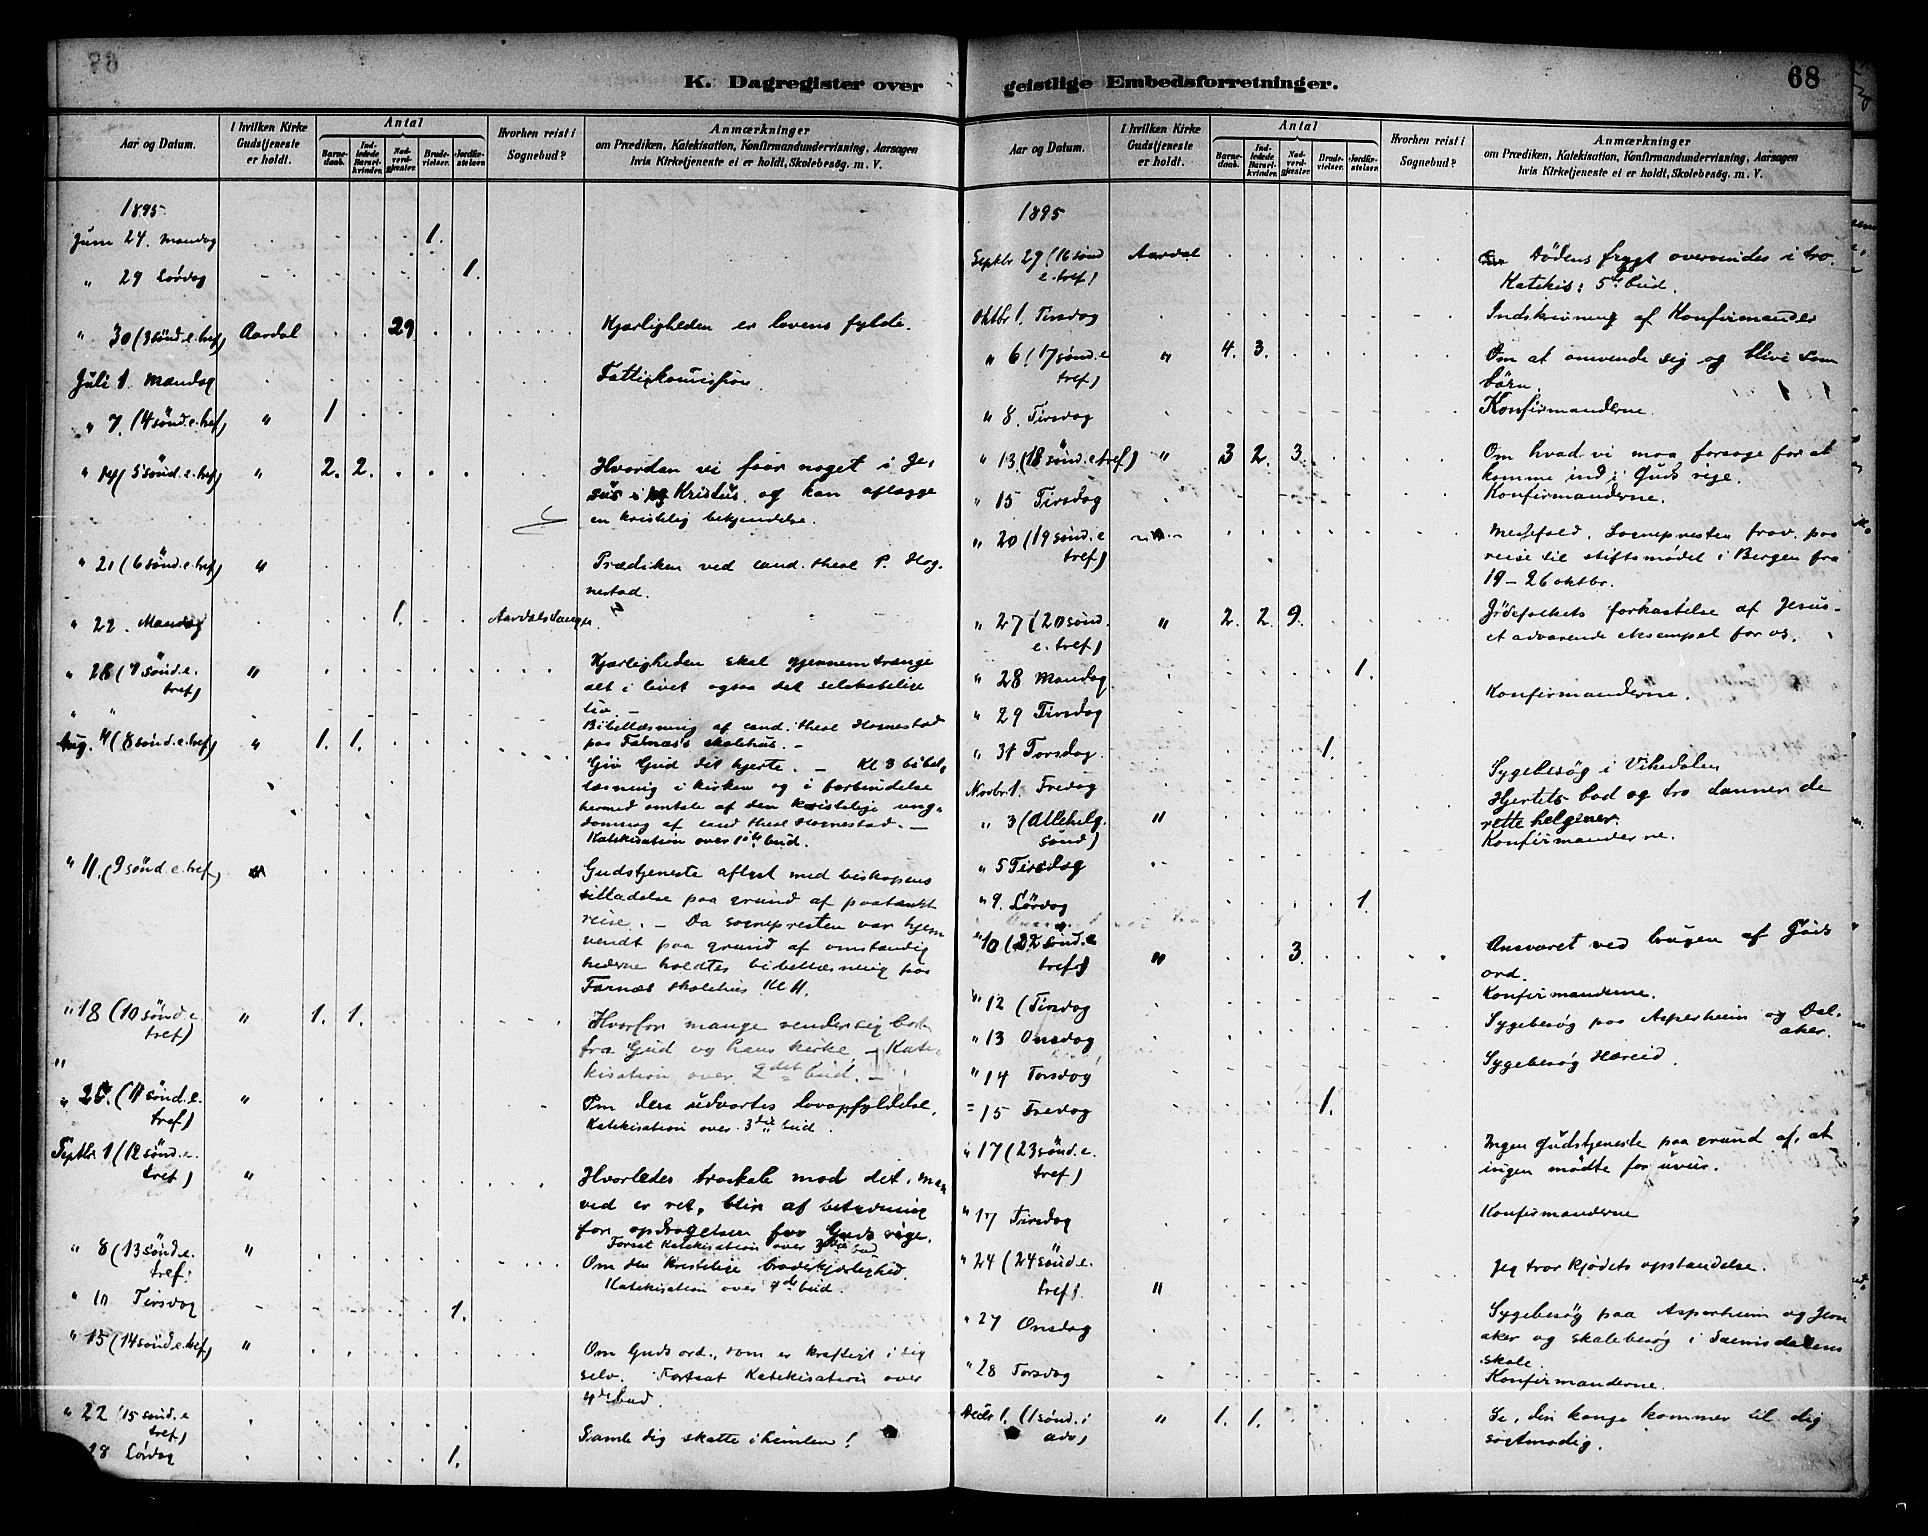 68
K. Dagregister over
Aar og Datum.
I hvilken Kirke Gudstjeneste er holdt.
Antal
Barnedaab.
Indledede Barselkvinder.
Nadverdgjester.
Brudevielser.
Jordfæstelser.
Hvorhen reist i Sognebud?
Anmærkninger
om Prædiken, Katekisation, Konfirmandundervisning, Aarsagen
hvis Kirketjeneste ei er holdt, Skolebesøg. m. V.
1895
Juni 24. Mandag 1.
" 29 Lørdag 1.
" 30 (3 sønd. e. tref) Aardal 29 Kjærligheden er lovens fylde.
Juli 1. Mandag Fattigkomission
" 7. (4 sønd. e. tref) " 1
" 14 (5 sønd. e. tref) " 2. 2. Hvordan vi faar noget i Je-
sus Kristus og kan aflægge
en kristelig bekjendelse.
" 21 (6 sønd. e. tref) " Prædiken ved cand. theol P. Hog-
nestad.
" 22. Mandag 1. Aardalstangen
" 28 (7 sønd. e. tref) " Kjærligheden skal gjennemtrænge
alt i livet ogsaa det selskabelige
liv. —
" " Bibellæsning af cand. theol Hognestad
paa Farnæs skolehus. —
Aug. 4 (8 sønd. e. tref) " 1. 1. Giv Gud dit hjerte. — Kl 3 bibel-
læsning i kirken og i forbindelse
hermed omtale af den kristelige ung-
domssag af cand theol Hognestad. —
Katekisation over 1ste bud.
" 11. (9 sønd. e. tref) Gudstjeneste aflyst med biskopens
tilladelse paa grund af paatænkt
reise. — Da sognepresten var hjem
vendt paa grund af omstændig
hederne holdtes bibellæsning paa
Farnæs skolehus Kl 11.
" 18 (10 sønd. e. tref) " 1. 1. Hvorfor mange vender sig bort
fra Gud og hans kirke. — Kate-
kisation over 2det bud. —
" 25. (11 sønd. e. tref) " Om den udvortes lovopfyldelse.
Katekisation over 3die bud.
Septbr 1 (12 sønd. e. tref) " Hvorledes troskab mod det, man
ved er ret, blir af betydning
for opdragelsen for Guds rige.
Fortsat Katekisation over 3die bud
" 8 (13 sønd. e. tref. " Om den kristelige broderkjærlighed.
Katekisation over 4de bud.
" 10 Tirsdag 1.
" 15 (14 sønd. e. tref) " Om Guds ord, som er kraftigt i sig
selv. Fortsat Katekisation over
4de bud.
" 22 (15 sønd. e tref) Samle dig skatte i himlen!
28 Lørdag 1.
geistlige Embedsforretninger.
68
Aar og Datum.
I hvilken Kirke Gudstjeneste er holdt.
Antal
Barnedaab.
Indledede Barselkvinder.
Nadverdgjester.
Brudevielser.
Jordfæstelser.
Hvorhen reist i Sognebud?
Anmærkninger
om Prædiken, Katekisation, Konfirmandundervisning, Aarsagen
hvis Kirketjeneste ei er holdt, Skolebesøg. m. V.
1895
Septbr 29 (16 sønd e. tref) Aardal Dødens frygt overvindes i tro.
Katekis: 5te bud.
Oktbr 1. Tirsdag Indskrivning af Konfirmander
" 6 (17 sønd. e tref) " 4. 3. Om at omvende sig og blive som
børn.
" 8. Tirsdag Konfirmanderne.
" 13 (18 sønd. e tref) " 3 2. 3. Om hvad vi maa forsage for at
komme ind i Guds rige.
" 15 Tirsdag Konfirmanderne.
" 20 (19 sønd. e tref) Messefald. Sognepresten frav. paa
reise til stiftsmødet i Bergen fra
19 – 26 oktbr.
" 27 (20 sønd. e. tref) " 2. 2. 9. Jødefolkets forkastelse af Jesus –
et advarende eksempel for os.
" 28 Mandag 1.
" 29 Tirsdag Konfirmanderne.
" 31 Torsdag 1.
Novbr 1. Fredag Sygebesøg i Vikedalen
" 3 (Allehelg. sønd) " Hjertets bod og tro danner de
rette helgener.
" 5 Tirsdag Konfirmanderne.
" 9. Lørdag 1.
" 10 (22 sønd. e tref) " 3. Ansvaret ved brugen af Guds
ord.
" 12 (Tirsdag Konfirmanderne.
" 13 Onsdag Sygebesøg paa Asperheim og Dal-
aker.
" 14 Torsdag Sygebesøg Hæreid
" 15 Fredag 1.
" 17 (23 sønd. e. tref) Ingen gudstjeneste paa grund af, at
ingen mødte for uveir.
" 17 Tirsdag Konfirmanderne
" 24 (24 sønd. e. tref) " Jeg tror kjødets opstandelse.
" 27 Onsdag Sygebesøg paa Asperheim og
aker og skolebesøg i
skole.
" 28 Torsdag Konfirmanderne.
Decbr 1. (1 sønd. i adv) " 1. 1. Se, din konge kommer til dig
sagtmodig.